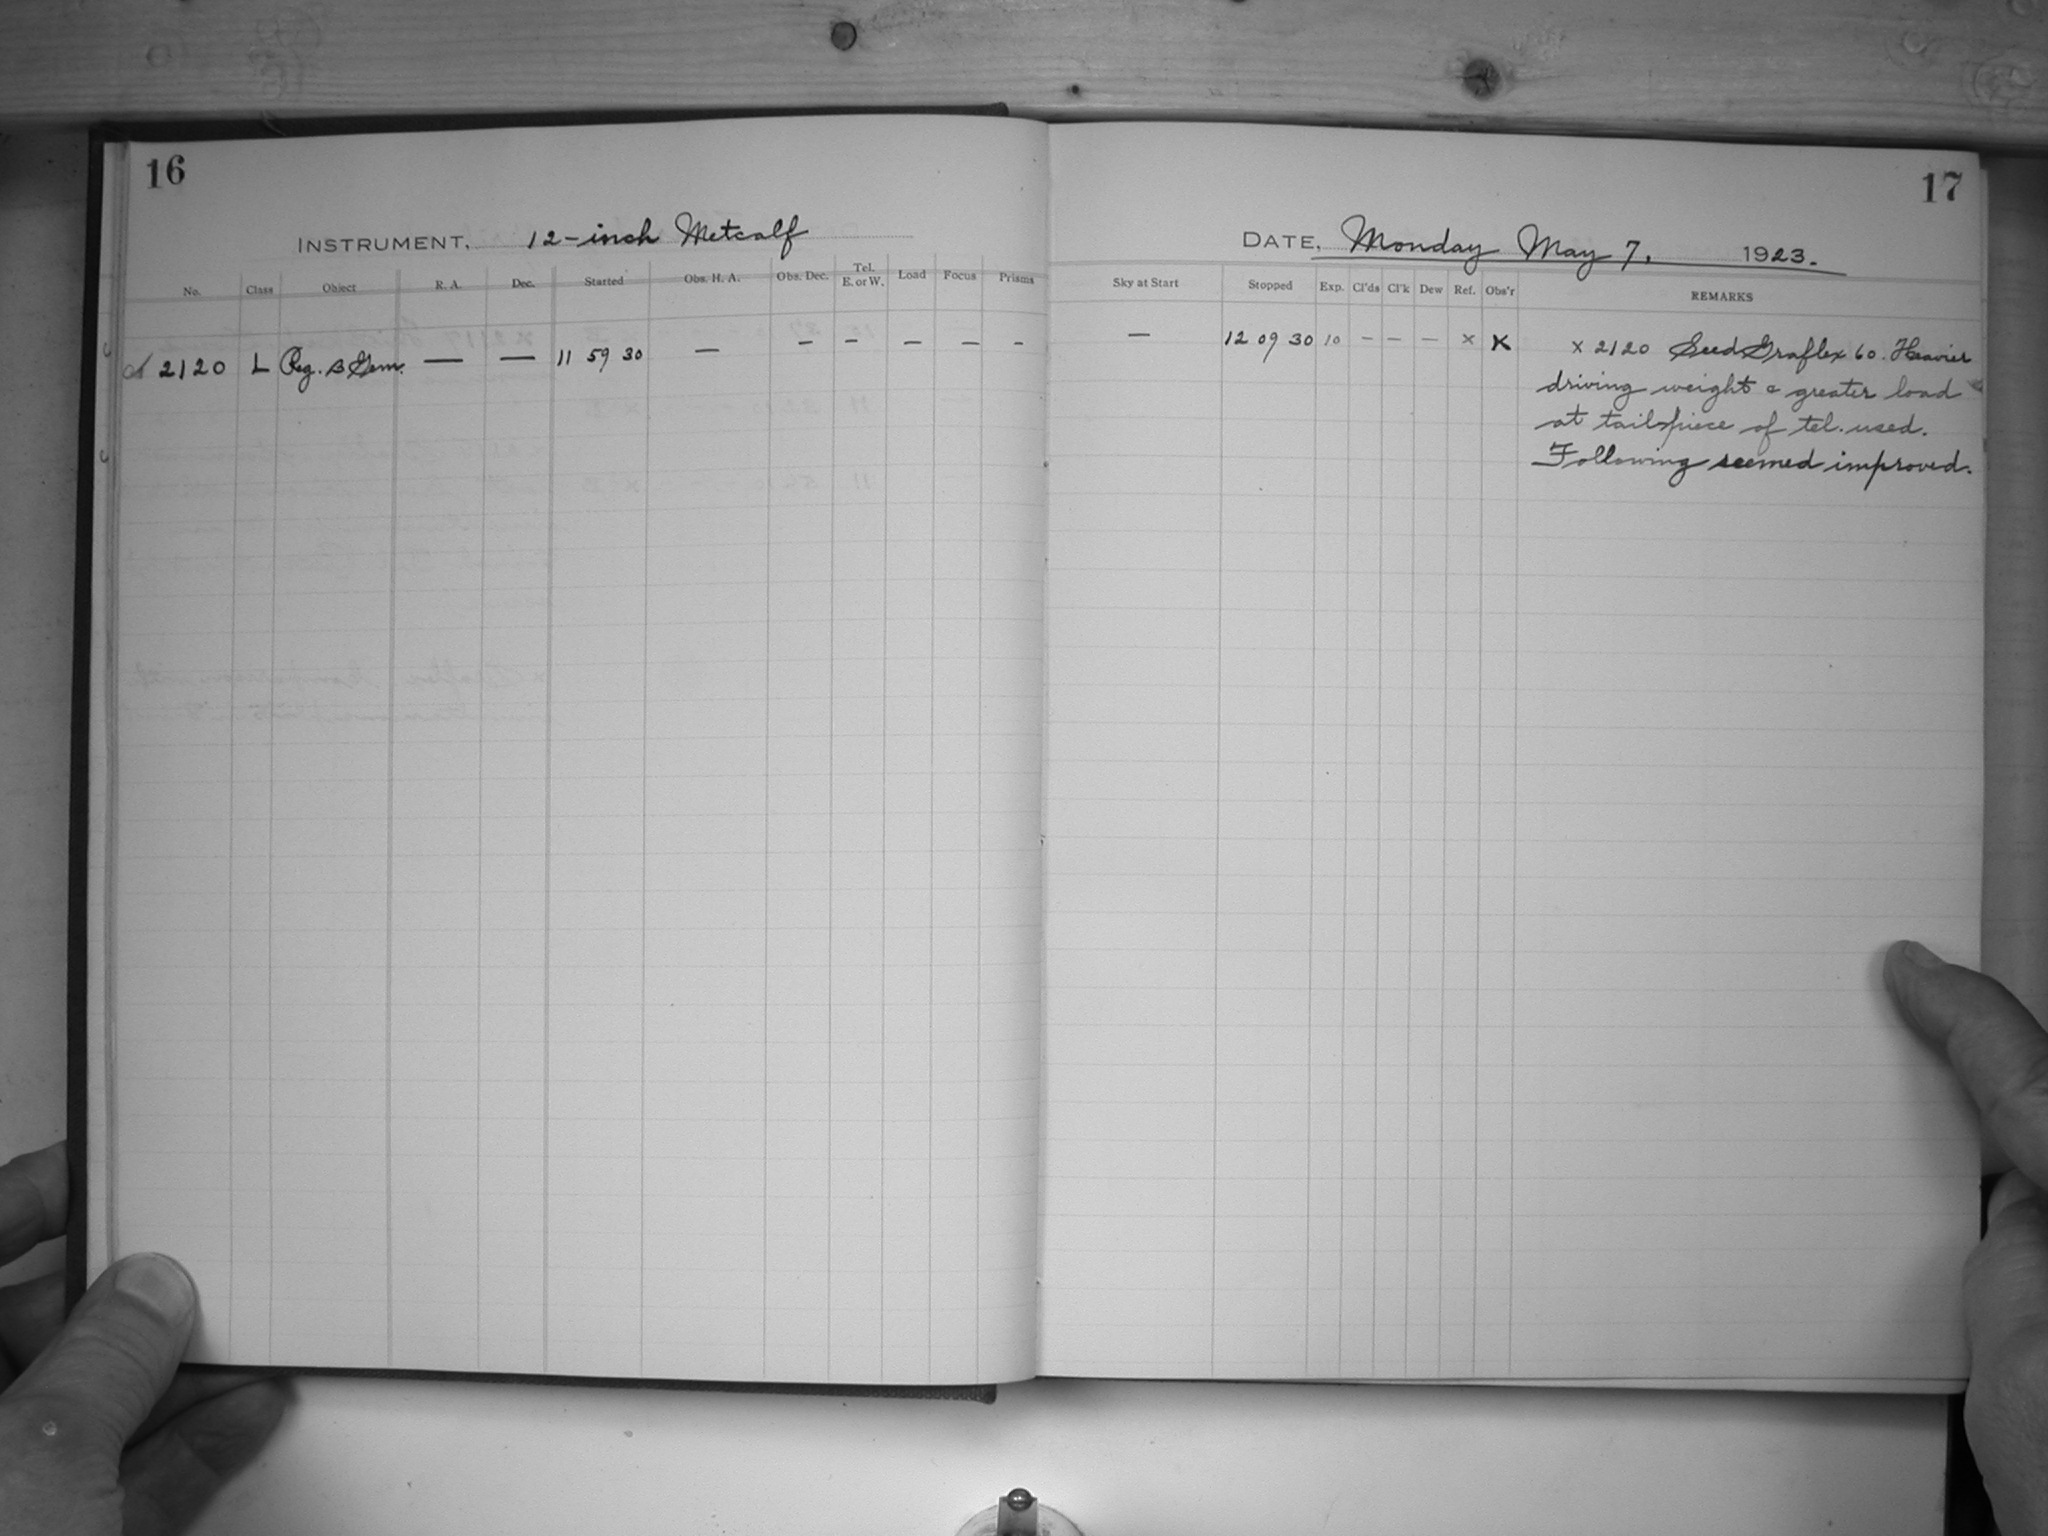 16
INSTRUMENT, 12-inch Metcalf
No. Class Object R. A. Dec. Started Obs. H. A. Obs. Dec. Tel. E. or W. Load Focus Prisms
2120 L Reg. B Gem. — — 11 59 30 — — — — — —
17
DATE, Monday May 7, 1923.
Sky at Start Stopped Exp. Cl'ds Cl'k Dew Ref. Obs'r REMARKS
— 12 09 30 10 — — — x K x 2120 Seed Graflex 60. Heavier
driving weight & greater load
at tailpiece of tel. used.
Following seemed improved.